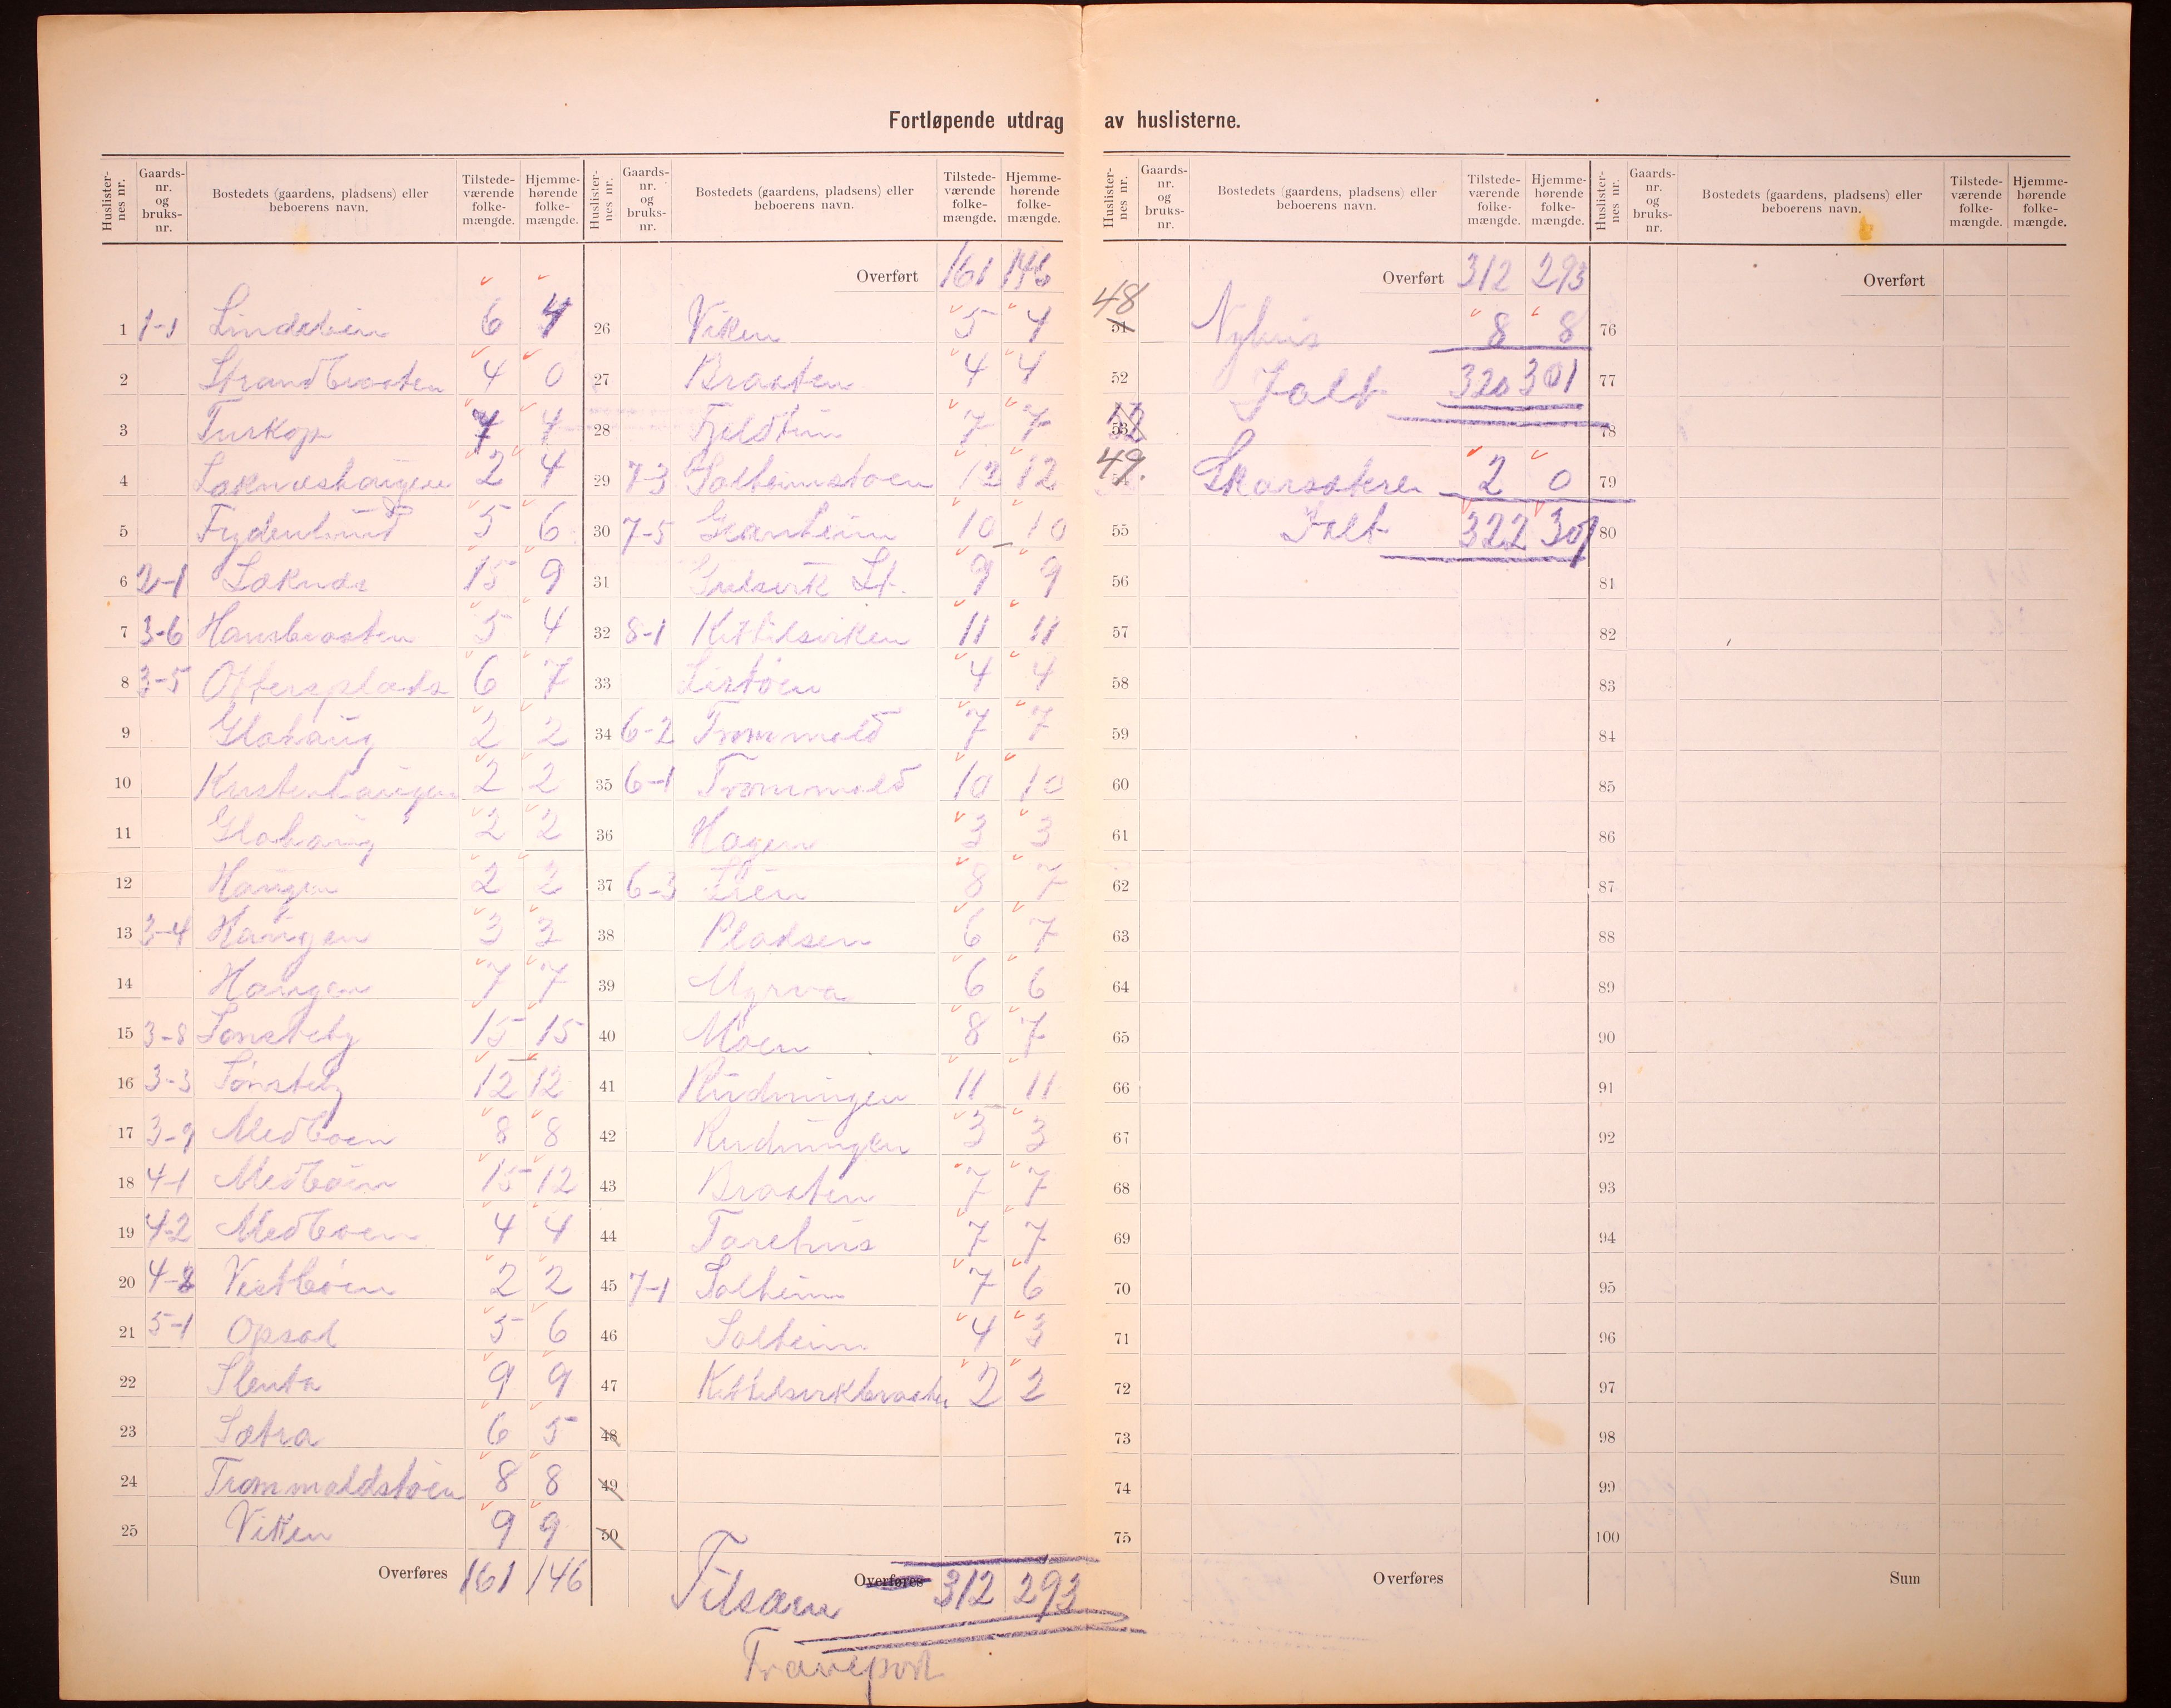 Fortløpende utdrag av huslisterne.
Huslisternes nr. Gaards-nr. og bruks-nr. Bostedets (gaardens, pladsens) eller beboerens navn. Tilstedeværende folkemængde. Hjemmehørende folkemængde.
1 1-1 Lindelien 6 4
2 Strandbraaten 4 0
3 Turkop 7 4
4 Løkneshaugen 2 4
5 Frydenlund 5 6
6 2-1 Løknes 15 9
7 3-6 Hansbraaten 5 4
8 3-5 Offersplads 6 7
9 Glahaug 2 2
10 2 2
11 Glahaug 2 2
12 Haugen 2 2
13 3-4 Haugen 3 3
14 Haugen 7 7
15 3-8 Tønsteby 15 15
16 3-3 Tønsteby 12 12
17 3-9 Medboen 8 8
18 4-1 Medboen 15 12
19 4-2 Medboen 4 4
20 4-3 Vestboen 2 2
21 5-1 Opsal 5 6
22 Slenta 9 9
23 Sætra 6 5
24 Trommaldstøen 8 8
25 Viken 9 9
Overføres 161 146
Huslisternes nr. Gaards-nr. og bruks-nr. Bostedets (gaardens, pladsens) eller beboerens navn. Tilstedeværende folkemængde. Hjemmehørende folkemængde.
Overført 161 146
26 Viken 5 4
27 Braaten 4 4
28 Fjeldtun 7 7
29 7-3 Solheimstøen 12 12
30 7-5 Granheim 10 10
31 Gulsvik St. 9 9
32 8-1 Kittilsviken 11 11
33 Listøen 4 4
34 6-2 Trommald 7 7
35 6-1 Trommald 10 10
36 Hagen 3 3
37 6-3 Lien 8 7
38 Pladsen 6 7
39 Myrva 6 6
40 Moen 8 7
41 Rudningen 11 11
42 Rudningen 3 3
43 Braaten 7 7
44 Torehus 7 7
45 7-1 Solheim 7 6
46 Solheim 4 3
47 Kittilsvikbraaten 2 2
48
49
50
Tilsam Overføres 312 293
Transport
Huslisternes nr. Gaards-nr. og bruks-nr. Bostedets (gaardens, pladsens) eller beboerens navn. Tilstedeværende folkemængde. Hjemmehørende folkemængde.
Overført 312 293
48 51 Nyhus 8 8
52 Ialt 320 301
53
49. Skarsætren 2 0
55 Ialt 322 301
56
57
58
59
60
61
62
63
64
65
66
67
68
69
70
71
72
73
74
75
Overføres
Huslisternes nr. Gaards-nr. og bruks-nr. Bostedets (gaardens, pladsens) eller beboerens navn. Tilstedeværende folkemængde. Hjemmehørende folkemængde.
Overført
76
77
78
79
80
81
82
83
84
85
86
87
88
89
90
91
92
93
94
95
96
97
98
99
100
Sum